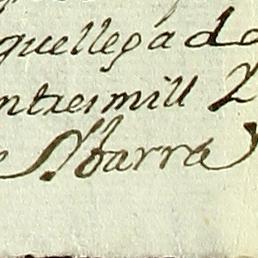 quellegado
ntresmill 2
Ybarra